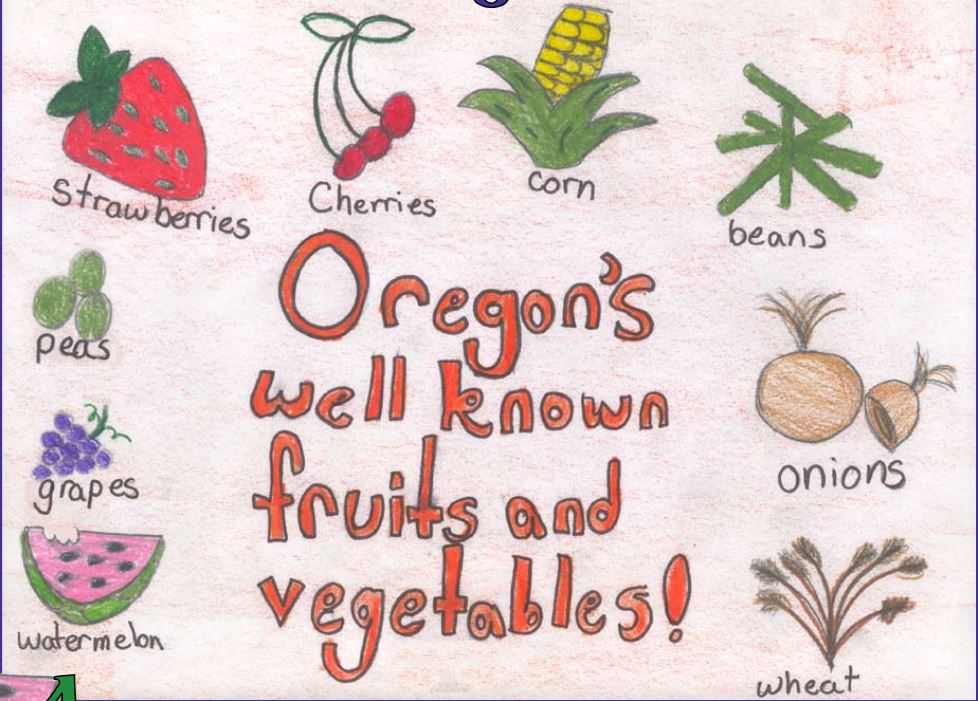 Strawberries
Cherries
corn
beans
peas
grapes
watermelon
Oregon's
well known
fruits and
vegetables!
onions
wheat